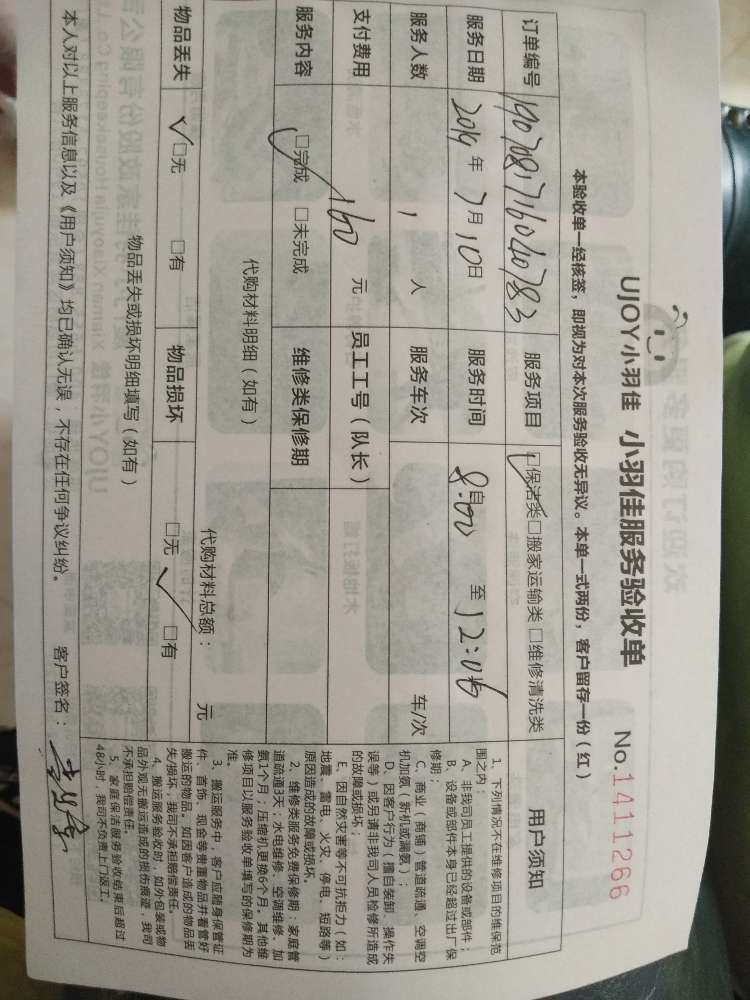 UJOY小羽佳 小羽佳服务验收单 No.1411266
本验收单一经核签，即视为对本次服务验收无异议。本单一式两份，客户留存一份（红）
订单编号 1907081716040783 服务项目 ☑保洁类□搬家运输类□维修清洗类
服务日期 2019年7月10日 服务时间 自8:00至12:06
服务人数 1人 服务车次 车/次
支付费用 160元 员工工号（队长）
服务内容 ☑完成 □未完成 维修类保修期
代购材料明细（如有）
代购材料总额： 元
物品丢失 ☑无 □有 物品损坏 ☑无 □有
物品丢失或损坏明细填写（如有）
本人对以上服务信息以及《用户须知》均已确认无误，不存在任何争议纠纷。 客户签名：
用户须知
1、下列情况不在维修项目的维保范
围之内：
A、非我司员工提供的设备或部件；
B、设备或部件本身已经超过出厂保
修期；
C、商业（商铺）管道疏通、空调空
机加氨（新机或漏氨）；
D、因客户行为（擅自装卸、操作失
误等）或另请非我司人员检修所造成
的故障或损坏；
E、因自然灾害等不可抗拒力（如：
地震、雷电、火灾、停电、短路等）
原因造成的故障或损坏。
2、维修类服务免费保修期：家庭管
道疏通3天；水电维修、空调维修、加
氨1个月；压缩机更换6个月。其他维
修项目以服务验收单填写的保修期为
准。
3、搬运服务中，客户应随身保管证
件、首饰、现金等贵重物品并看管好
搬运的物品。如因客户造成的物品丢
失/损坏，我司不承担赔偿责任。
4、搬运服务验收时，如外包装或物
品外观无搬运造成的损伤痕迹，我司
不承担赔偿责任。
5、家庭保洁服务验收结束后超过
48小时，我司不负责上门返工。